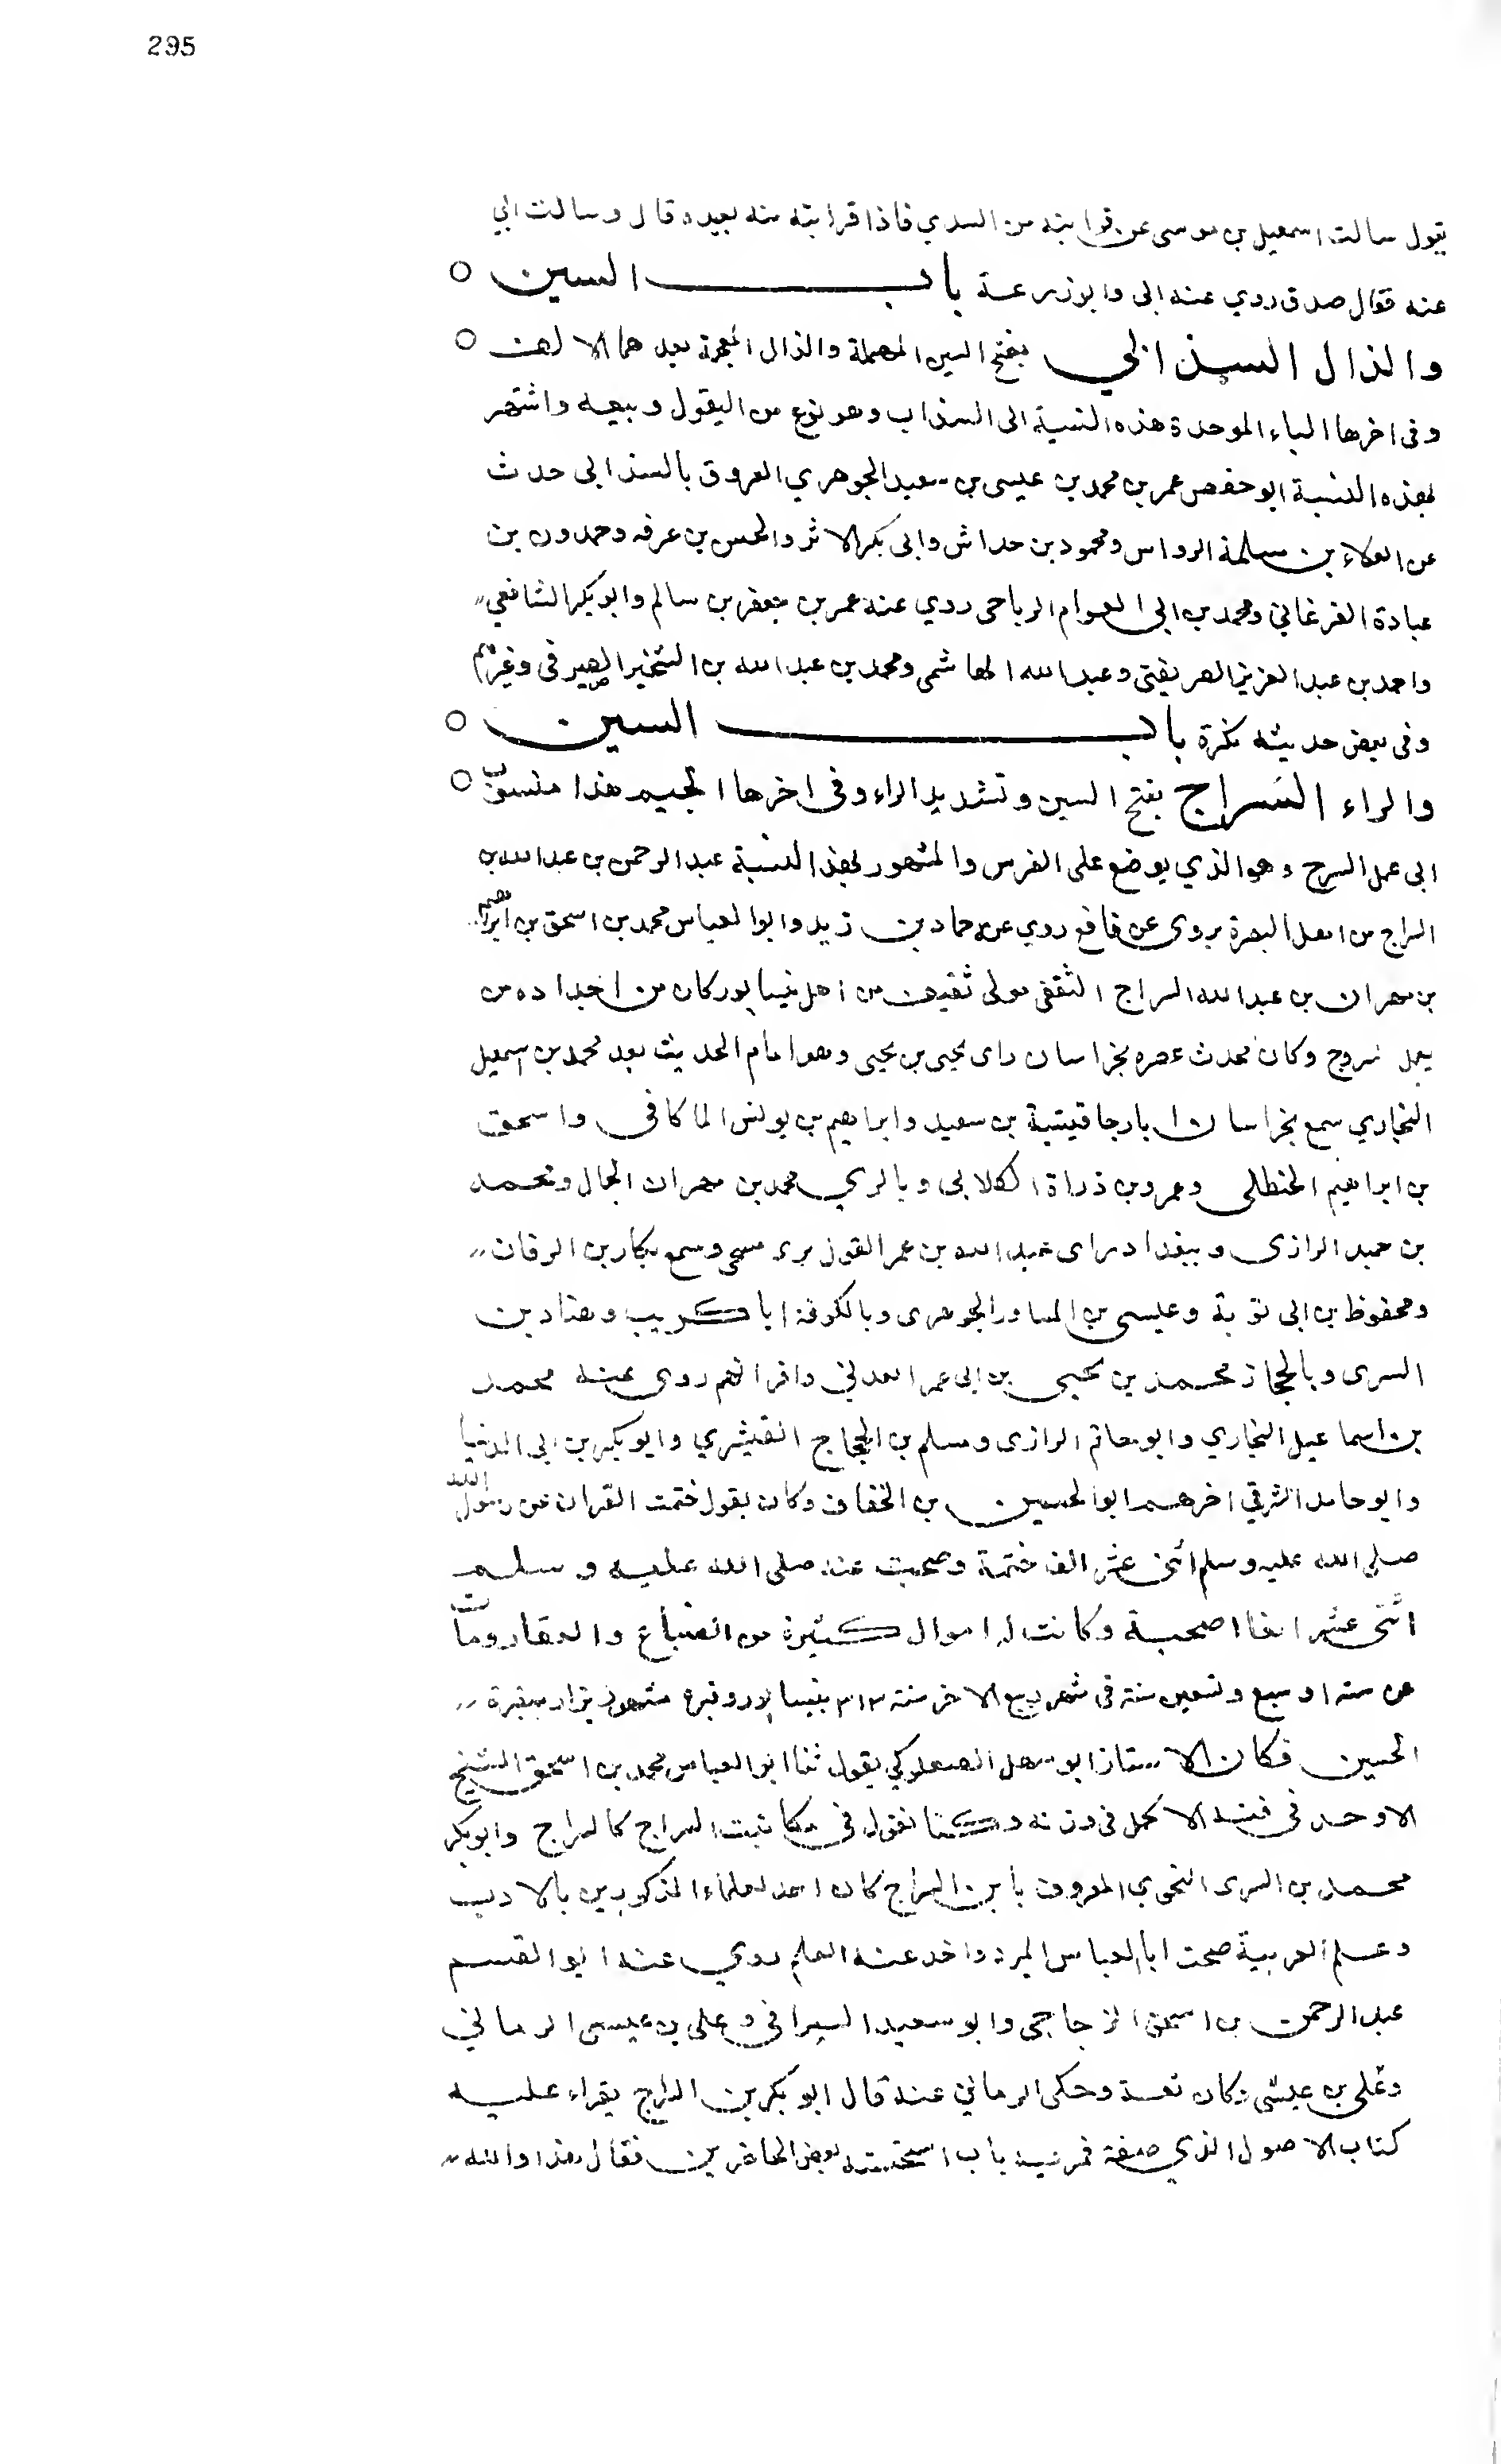 295
يقول سالت اسمعيل بن موسى عن قرابته من السدي فاذا قرابته منه بعيده قال وسالت ابي
عنه فقال صدوق روي عنه ابى وابوزرعة باب السين ○
والذال السذابي بفتح السين المهملة والذال المعجمة بعدهما الالف ○
وفى اخرها الباء الموحدة هذه النسبة الى السذاب وهو نوع من البقول وبيعه واشتهر
بهذه النسبة ابو حفص عمر بن محمد بن عيسى بن سعيد الجوهري المعروف بالسذابى حدث
عن العلاء بن مسلمة الرواس ومحمود بن خداش وابى بكر الاثر والحسن بن عرفه وحمدون بن
عبادة الفرغاني ومحمد بن ابى العوام الرياحى روي عنه عمر بن جعفر بن سالم وابو بكر الشافعي
واحمد بن عبد العزيز الصريفينى وعبد الله الهاشمى ومحمد بن عبد الله بن الشخير الصيرفى وغيرهم
وفى بعض حديثه نكرة باب السين ○
والراء السراج بفتح السين وتشديد الراء وفى اخرها الجيم هذا منسوب ○
الى عمل السرج وهو الذي يوضع على الفرس والمشهور بهذا النسبة عبد الرحمن بن عبد الله بن
السراج من اهل البصرة يروى عن نافع روي عنه حماد بن زيد وابو العباس محمد بن اسحق بن ابراهيم
بن مهران بن عبد الله السراج الثقفى مولى ثقيف من اهل نيسابور كان من اجداده من
يعمل سروج وكان محدث عصره بخراسان راى يحيى بن يحيى وهو امام الحديث بعد محمد بن اسمعيل
البخاري سمع بخراسان ابا رجا قتيبة بن سعيد وابراهيم بن يونس الماكافى واسحق
بن ابراهيم الحنظلى وعمرو بن ذراة الكلابى وبالري محمد بن مهران الجمال ومحمد
بن حميد الرازى وببغداد راى عبد الله بن عمر القواريرى وسمع بكار بن الرفان
ومحفوظ بن ابى توبة وعيسى بن المساور الجوهرى وبالكوفة ابا كريب وهناد بن
السرى وبالحجاز محمد بن يحيى بن ابى عمر العدني واقرانهم روى عنه محمد
بن اسماعيل البخاري وابو حاتم الرازى ومسلم بن الحجاج القشيري وابو بكر بن ابى الدنيا
وابو حامد الشرقي اخرهم ابو الحسين بن الخفاف وكان يقول ختمت القران عن رسول الله
صلى الله عليه وسلم اثنى عشر الف ختمة وضحيت عنه صلى الله عليه وسلم
اثنى عشر الفا اضحية وكانت له اموال كثيرة من الضياع والعقار ومات
عن ستة او سبع وتسعين سنة فى شهر ربيع الاخر سنة ٣١٣ بنيسابور وقبره مشهور يزار بمقبرة
الحسين فكان الاستاذ ابو سهل الصعلوكي يقول ثنا ابو العباس محمد بن اسحق الشيخ
الاوحد فى فنه الاكمل فى وزنه وكنا نقول فى مكاتبت السراج كالسراج وابو بكر
محمد بن السرى النحوي المعروف بابن السراج كان احد العلماء المذكورين بالادب
وعلم العربية صحت ابا العباس المبرد واخد عنه العلم روي عنه ابو القسم
عبد الرحمن بن اسحق الزجاجى وابو سعيد السيرافى وعلى بن عيسى الرماني
وعلى بن عيسى وكان ثقة وحكى الرماني عنه قال ابو بكر بن السراج يقراء عليه
كتاب الاصول الذي صنفه فمر فيه باب استحسنه بعض الحاضرين فقال هذا والله